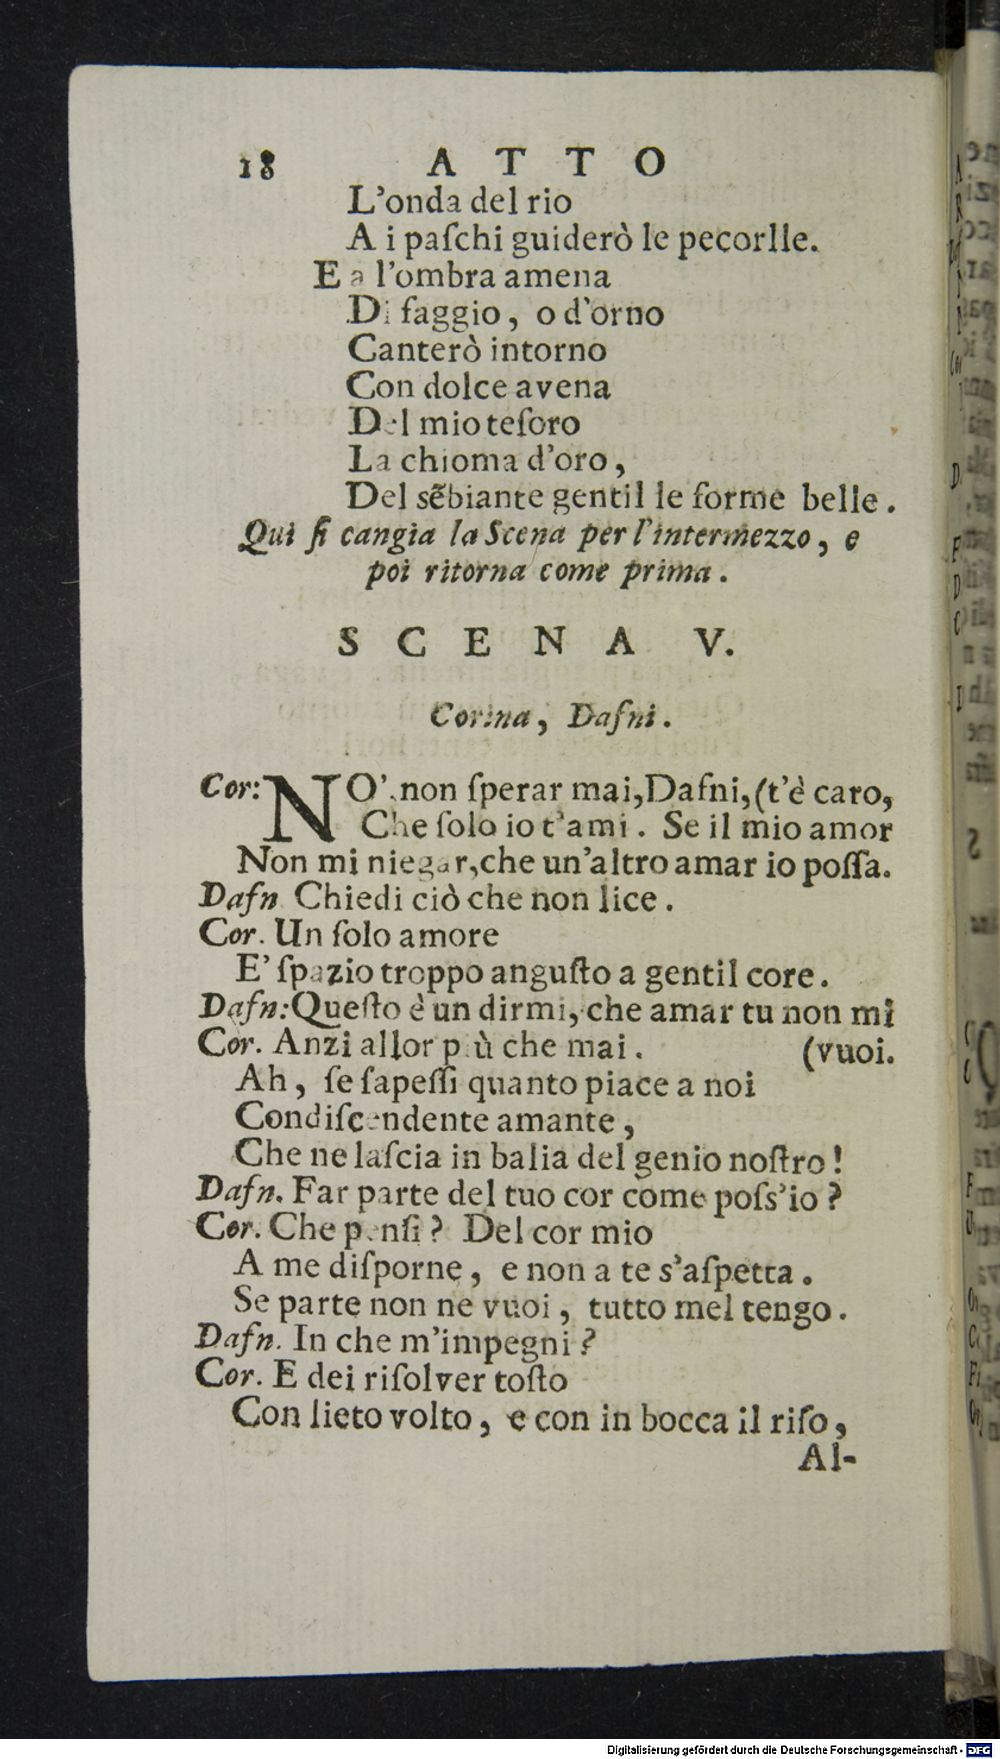 18 ATTO
L'onda del rio
A i paſchi guiderò le pecorlle.
E a l'ombra amena
Di faggio, o d'orno
Canterò intorno
Con dolce avena
Del mio teſoro
La chioma d'oro,
Del sẽbiante gentil le forme belle.
Qui ſi cangia la Scena per l'intermezzo, e
poi ritorna come prima.
SCENA V.
Corina, Dafni.
Cor: NO', non ſperar mai, Dafni, (t'è caro,
Che ſolo io t'ami. Se il mio amor
Non mi niegar, che un'altro amar io poſſa.
Dafn Chiedi ciò che non lice.
Cor. Un ſolo amore
E' ſpazio troppo anguſto a gentil core.
Dafn: Queſto è un dirmi, che amar tu non mi
Cor. Anzi allor più che mai. (vuoi.
Ah, ſe ſapeſſi quanto piace a noi
Condiſcendente amante,
Che ne laſcia in balia del genio noſtro!
Dafn. Far parte del tuo cor come poſs'io?
Cor. Che penſi? Del cor mio
A me diſporne, e non a te s'aſpetta.
Se parte non ne vuoi, tutto mel tengo.
Dafn. In che m'impegni?
Cor. E dei riſolver toſto
Con lieto volto, e con in bocca il riſo,
Al-
Digitalisierung gefördert durch die Deutsche Forschungsgemeinschaft - DFG